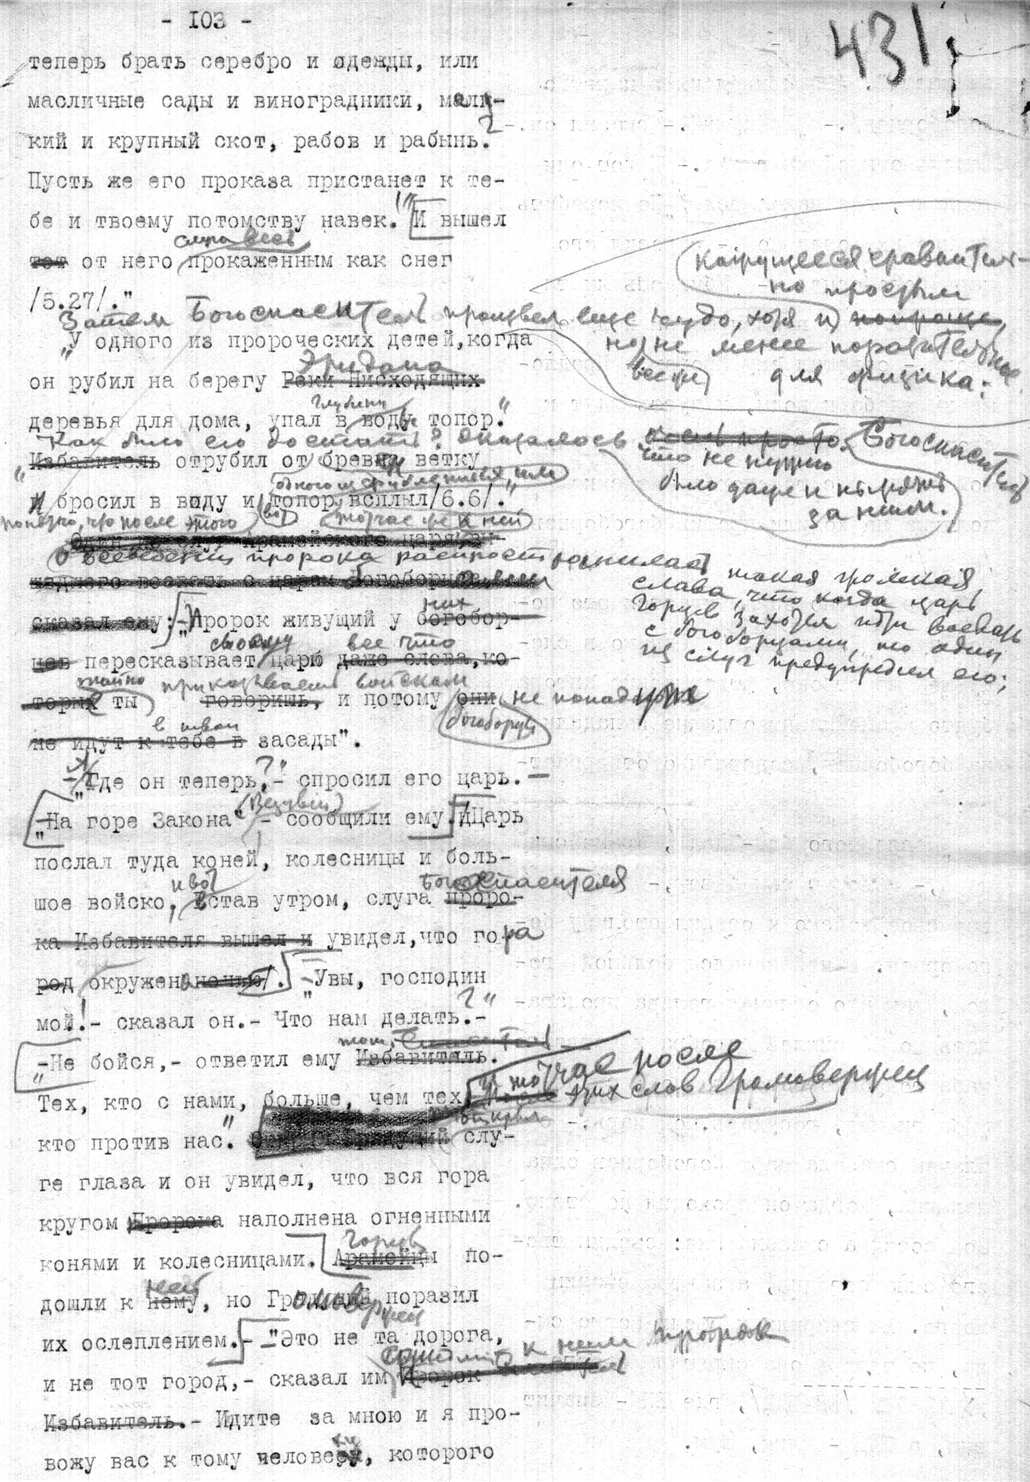 - 103 -
431
теперь брать серебро и одежды, или
масличные сады и виноградники, мел-
кий и крупный скот, рабов и рабынь?
Пусть же его проказа пристанет к те-
бе и твоему потомству навек!" И вышел
тот от него прокаженным как снег
/5.27/."
кажущееся сравнитель-
но простым
Затем Богоспаситель произвел еще чудо, хотя и попроще,
но не менее поразительное
для физика:
"У одного из пророческих детей, когда
Эридана
он рубил на берегу Реки Нисходящих
глубину
деревья для дома, упал в воду топор."
Как было его достать? Оказалось очень просто. Богоспаситель
что не нужно
было даже и нырять
за ним.
"Избавитель отрубил от бревна ветку
и бросил в воду и топор всплыл/6.6/."
после этого
тотчас же к ней
О всеведении пророка распространилась такая громкая
слава, что когда царь
Горцев захотел идти воевать
с богоборцами, то один
из слуг предупредил его;
сказал ему:-"Пророк живущий у богобор-
них
своему все что
цев пересказывает царю даже слова, ко-
приказываешь войскам
торых ты говоришь, и потому они не попадут
богоборцы
в твои
не идут к тебе в засады".
-"Где он теперь?"- спросил его царь.-
(Везувий)
-"На горе Закона"- сообщили ему. Царь
послал туда коней, колесницы и боль-
и вот
Богоспасителя
шое войско, встав утром, слуга проро-
ка Избавителя вышел и увидел, что гора
род окружена ночью/.-"Увы, господин
мой!- сказал он.- Что нам делать?"-
тот
-"Не бойся,- ответил ему Избавитель.
тотчас после
Тех, кто с нами, больше, чем тех,
этих слов Громовержец
открыл
кто против нас". слу-
ге глаза и он увидел, что вся гора
кругом Пророка наполнена огненными
Горцы
конями и колесницами. Арамейцы по-
ней
дошли к нему, но Громовержец поразил
их ослеплением.-"Это не та дорога,
к ним пророк
и не тот город,- сказал им Пророк
Избавитель.- Идите за мною и я про-
вожу вас к тому человеку, которого